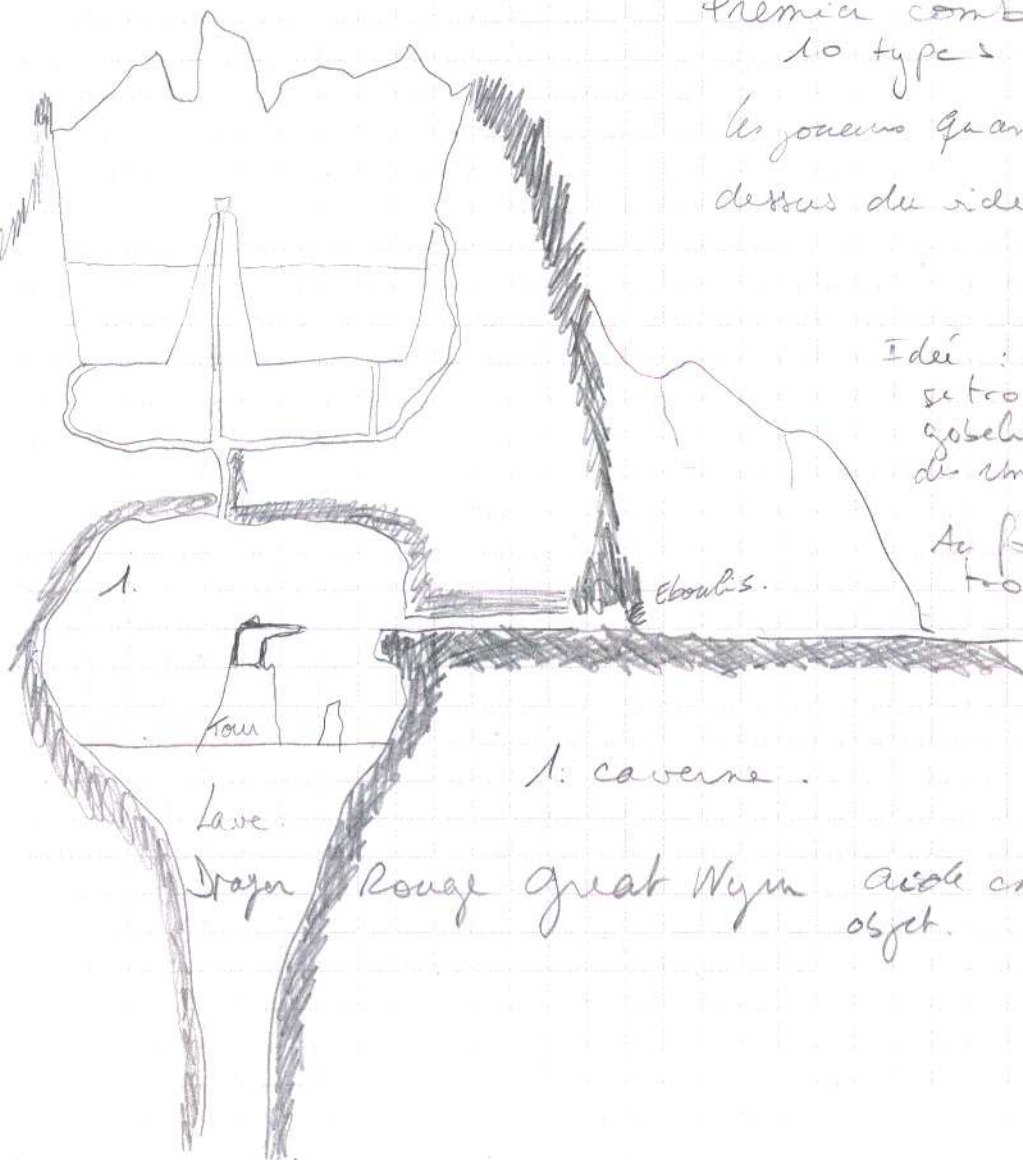 Premier comb
10 types
les joueurs quan
dessus du vide
Ideé :
se tro
gobel
des
Au f
tro
Eboulis.
1.
Tour
1. caverne.
Lave
Dragon Rouge Great Wyrm aide cr
objet.